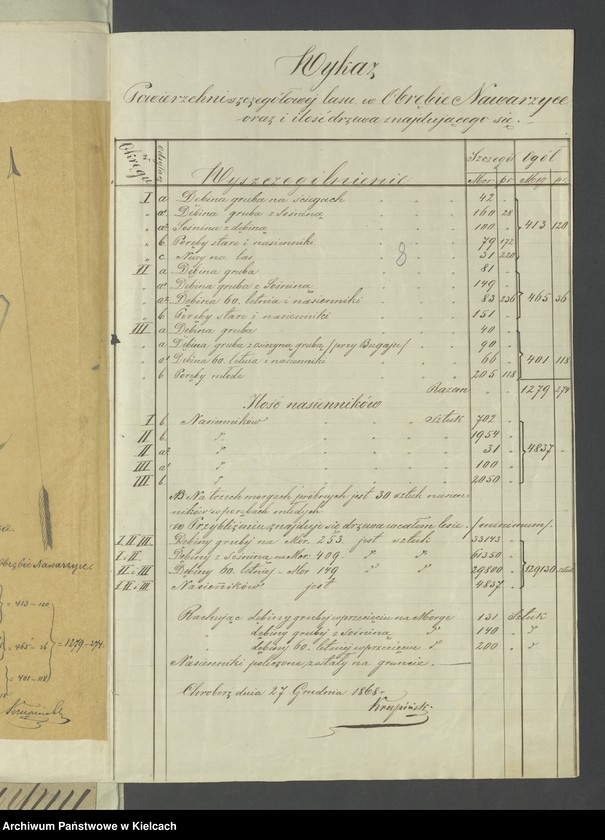 Wykaz
Powierzchni szczegółowéj lasu w Obrębie Nawarzyce
oraz i ilość drzewa znajdującego się.
Okręgu Wyszczególnienie Szczegół Ogół
Mor. pr. Morg. pr.
I a Dębina gruba na ściegach 42
" a¹ Dębina gruba z Sośniną 160 28
" a² Sośnina z dębiną 100 413 120
" b. Poręby stare i nasienniki 79 172
" c 31 220
8
II a Dębina gruba 81
" Dębina gruba z Sośniną 149
" a² Dębina 60. letnia i nasienniki 83 236 465 36
" b Poręby stare i nasienniki 151
III a Dębina gruba 40
" a Dębina gruba z osiczyną grubą /przy Bugaju/ 90
" a¹ Dębina 60 letnia i nasienniki 66 401 118
" b Poręby młode 205 118
Razem 1279 274
Ilość nasienników
I b. Nasienników Sztuk 702
II b. " 1954
II a² " 31 4837
III a¹ " 100
III b. " 2050
NB Na trzech morgach próbnych jest 30 sztuk nasien-
ników w porębach młodych
w Przybliżeniu znajduje się drzewa w całym lesie /minimum/
I, II, III. Dębiny grubéj na Mor. 253. jest sztuk 33143
I. i II. Dębiny z sośniną na Mor. 409. " " 61350
II i III Dębiny 60. letniéj - Mor 149 " " 29800 129130 sztuk
I. II i III Nasienników jest 4837
Rachując dębiny grubéj w przecięciu na Morgę 131 Sztuk
" dębiny grubéj z sośniną " 140 "
" dębiny 60. letniéj w przecięciu " 200 "
Nasienniki policzone zostały na gruncie.
Chroberz dnia 27 Grudnia 1868.
Krupiński
Obrębie Nawarzyce
= 413 - 120
= 465 - 36 = 1279 - 274.
= 401 - 118
Archiwum Państwowe w Kielcach